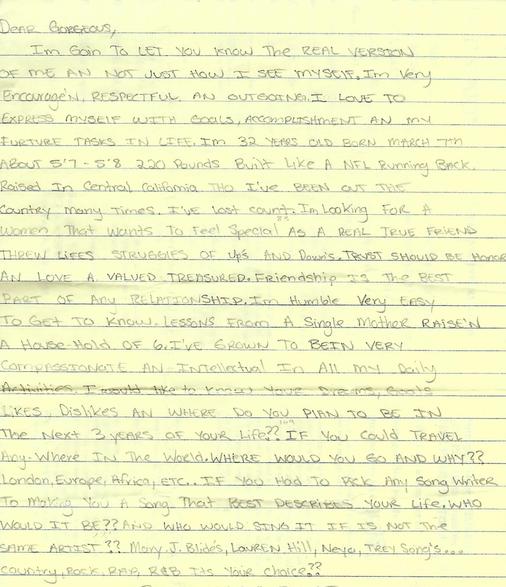 Dear Gorgeous,
I'm Goin To LET You Know The REAL VERSION
OF ME AN NOT JUST HOW I SEE MYSELF. I'm Very
Encourage'n, RESPECTFUL AN OUTGOING. I LOVE TO
EXPRESS MYSELF WITH GOALS, ACCOMPLISHMENT AN MY
FURTURE TASKS IN LIFE. I'm 32 YEARS OLD BORN MARCH 7TH
ABOUT 5'7 - 5'8 220 Pounds Built Like A NFL Running Back.
Raised In Central California THO I'VE BEEN OUT THE
Country many Times. I've lost count. I'm Looking FOR A
Women That Wants To Feel Special AS A REAL TRUE FRIEND
THREW LIFES STRUGGLES OF Up's AND Down's. TRUST SHOULD BE HONOR
AN LOVE A VALUED TREASURED. Friendship IS The BEST
PART OF Any RELATIONSHIP. I'm Humble Very EASY
TO GET TO KNOW. LESSONS FROM A Single MOTHER RAISE'N
A HOUSE-HOLD OF 6. I'VE GROWN TO BEIN VERY
COMPASSIONATE AN INTELLECTUAL IN ALL MY Daily
Activities. I would like to know YOUR Dreams, Goals
LIKES, Dislikes AN WHERE DO YOU PLAN TO BE IN
The Next 3 years OF YOUR Life?? IF YOU COULD TRAVEL
Any-Where IN The World. WHERE WOULD YOU GO AND WHY??
London, Europe, Africa, ETC.. IF YOU HAD TO PICK Any Song Writer
To Making You A Song That BEST DESCRIBES YOUR Life. WHO
WOULD IT BE?? AND WHO WOULD SING IT IF IS NOT The
SAME ARTIST?? Mary J. Blide's, LAUREN Hill, Neyo, TREY Song's...
Country, Rock, RAP, R&B Its Your Choice??